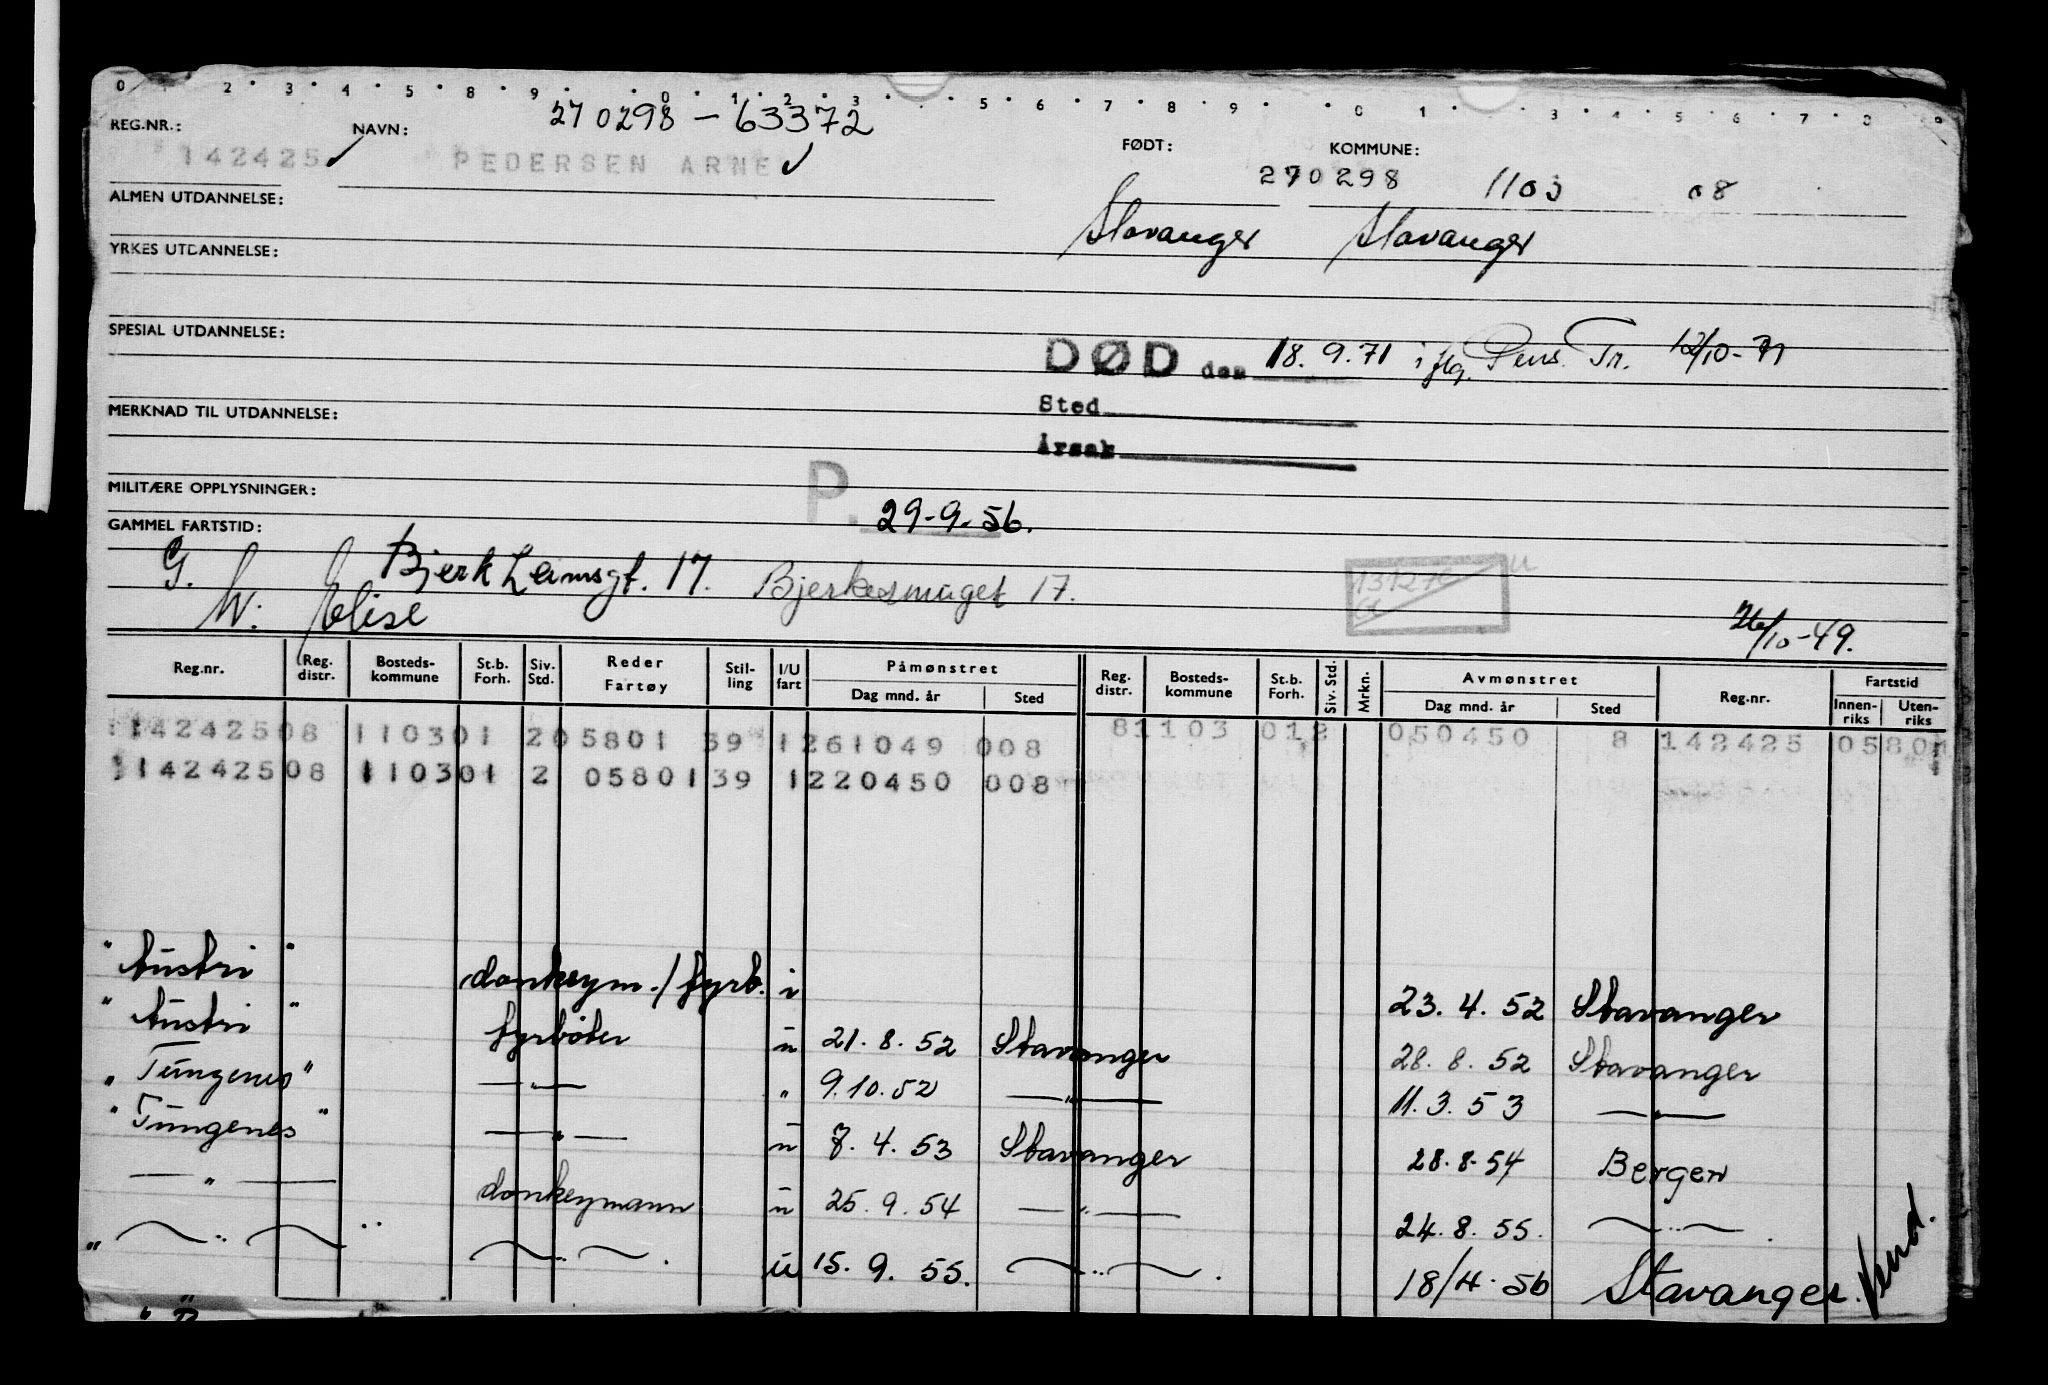 0 2 3 4 5 8 9 0 1 2 3 5 6 7 8 9 0 1 3 4 5 6 7 8 9
REG.NR.: NAVN: 270298 - 63372 FØDT: KOMMUNE:
142425 ✓ PEDERSEN ARNE ✓ 270298 1103 08
ALMEN UTDANNELSE: Stavanger Stavanger
YRKES UTDANNELSE:
SPESIAL UTDANNELSE:
DØD den 18.9.71 iflg. Pens. Tr. 12/10-71
Sted
MERKNAD TIL UTDANNELSE:
Årsak
MILITÆRE OPPLYSNINGER:
P. 29-9-56.
GAMMEL FARTSTID:
G. Bjerk 17. Bjerkesmuget 17.
W: Elise 26/10-49.
Reg.nr. Reg. distr. Bosteds-kommune St.b. Forh. Siv. Std. Reder Fartøy Stil-ling I/U fart Påmønstret Dag mnd. år Sted Reg. distr. Bosteds-kommune St.b. Forh. Siv. Std. Mrkn. Avmønstret Dag mnd. år Sted Reg.nr. Fartstid Innen-riks Uten-riks
114242508 110301 205801 39 1261049 008 81103 012 050450 8 142425 0580
114242508 110301 2 05801 39 1220450 008
"Austri" donkeym./fyrb. i 23.4.52 Stavanger
"Austri" fyrbøter u 21.8.52 Stavanger 28.8.52 Stavanger
"Tungenes" —"— " 9.10.52 —"— 11.3.53 —"—
"Tungenes" —"— u 7.4.53 Stavanger 28.8.54 Bergen
—"— donkeymann u 25.9.54 —"— 24.8.55. —"—
" —"— " —"—. u 15.9.55. —"—. 18/4.56 Stavanger. Vend.